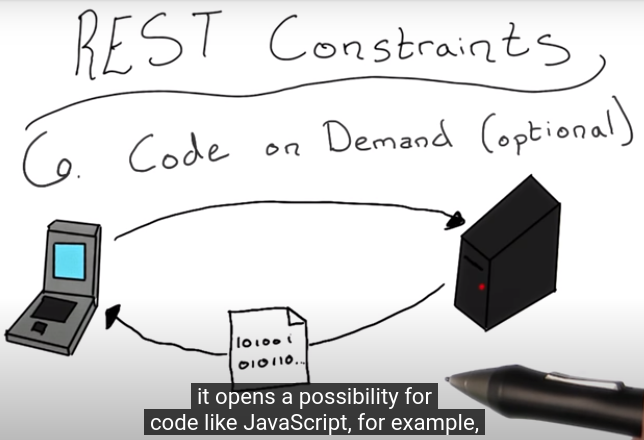 REST Constraints
6. Code on Demand (optional)
101001
010110...
it opens a possibility for
code like JavaScript, for example,